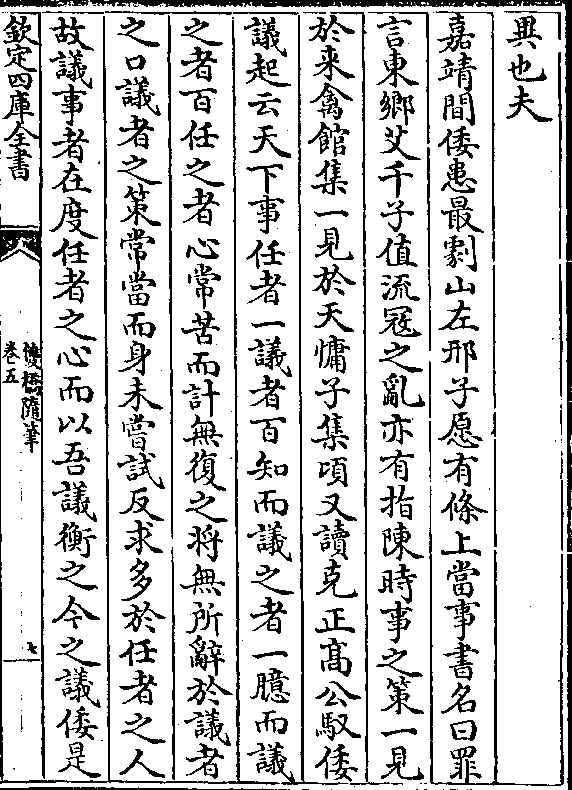 異也夫
嘉靖間倭患最劇山左邢子愿有條上當事書名曰罪
言東鄉艾千子值流冦之亂亦有指陳時事之策一見
於来禽館集一見於天慵子集頃又讀克正髙公馭倭
議起云天下事任者一議者百知而議之者一臆而議
之者百任之者心常苦而計無復之将無所辭於議者
之口議者之策常當而身未嘗試反求多於任者之人
故議事者在度任者之心而以吾議衡之今之議倭是
欽定四庫全書
雙橋隨筆
卷五
七